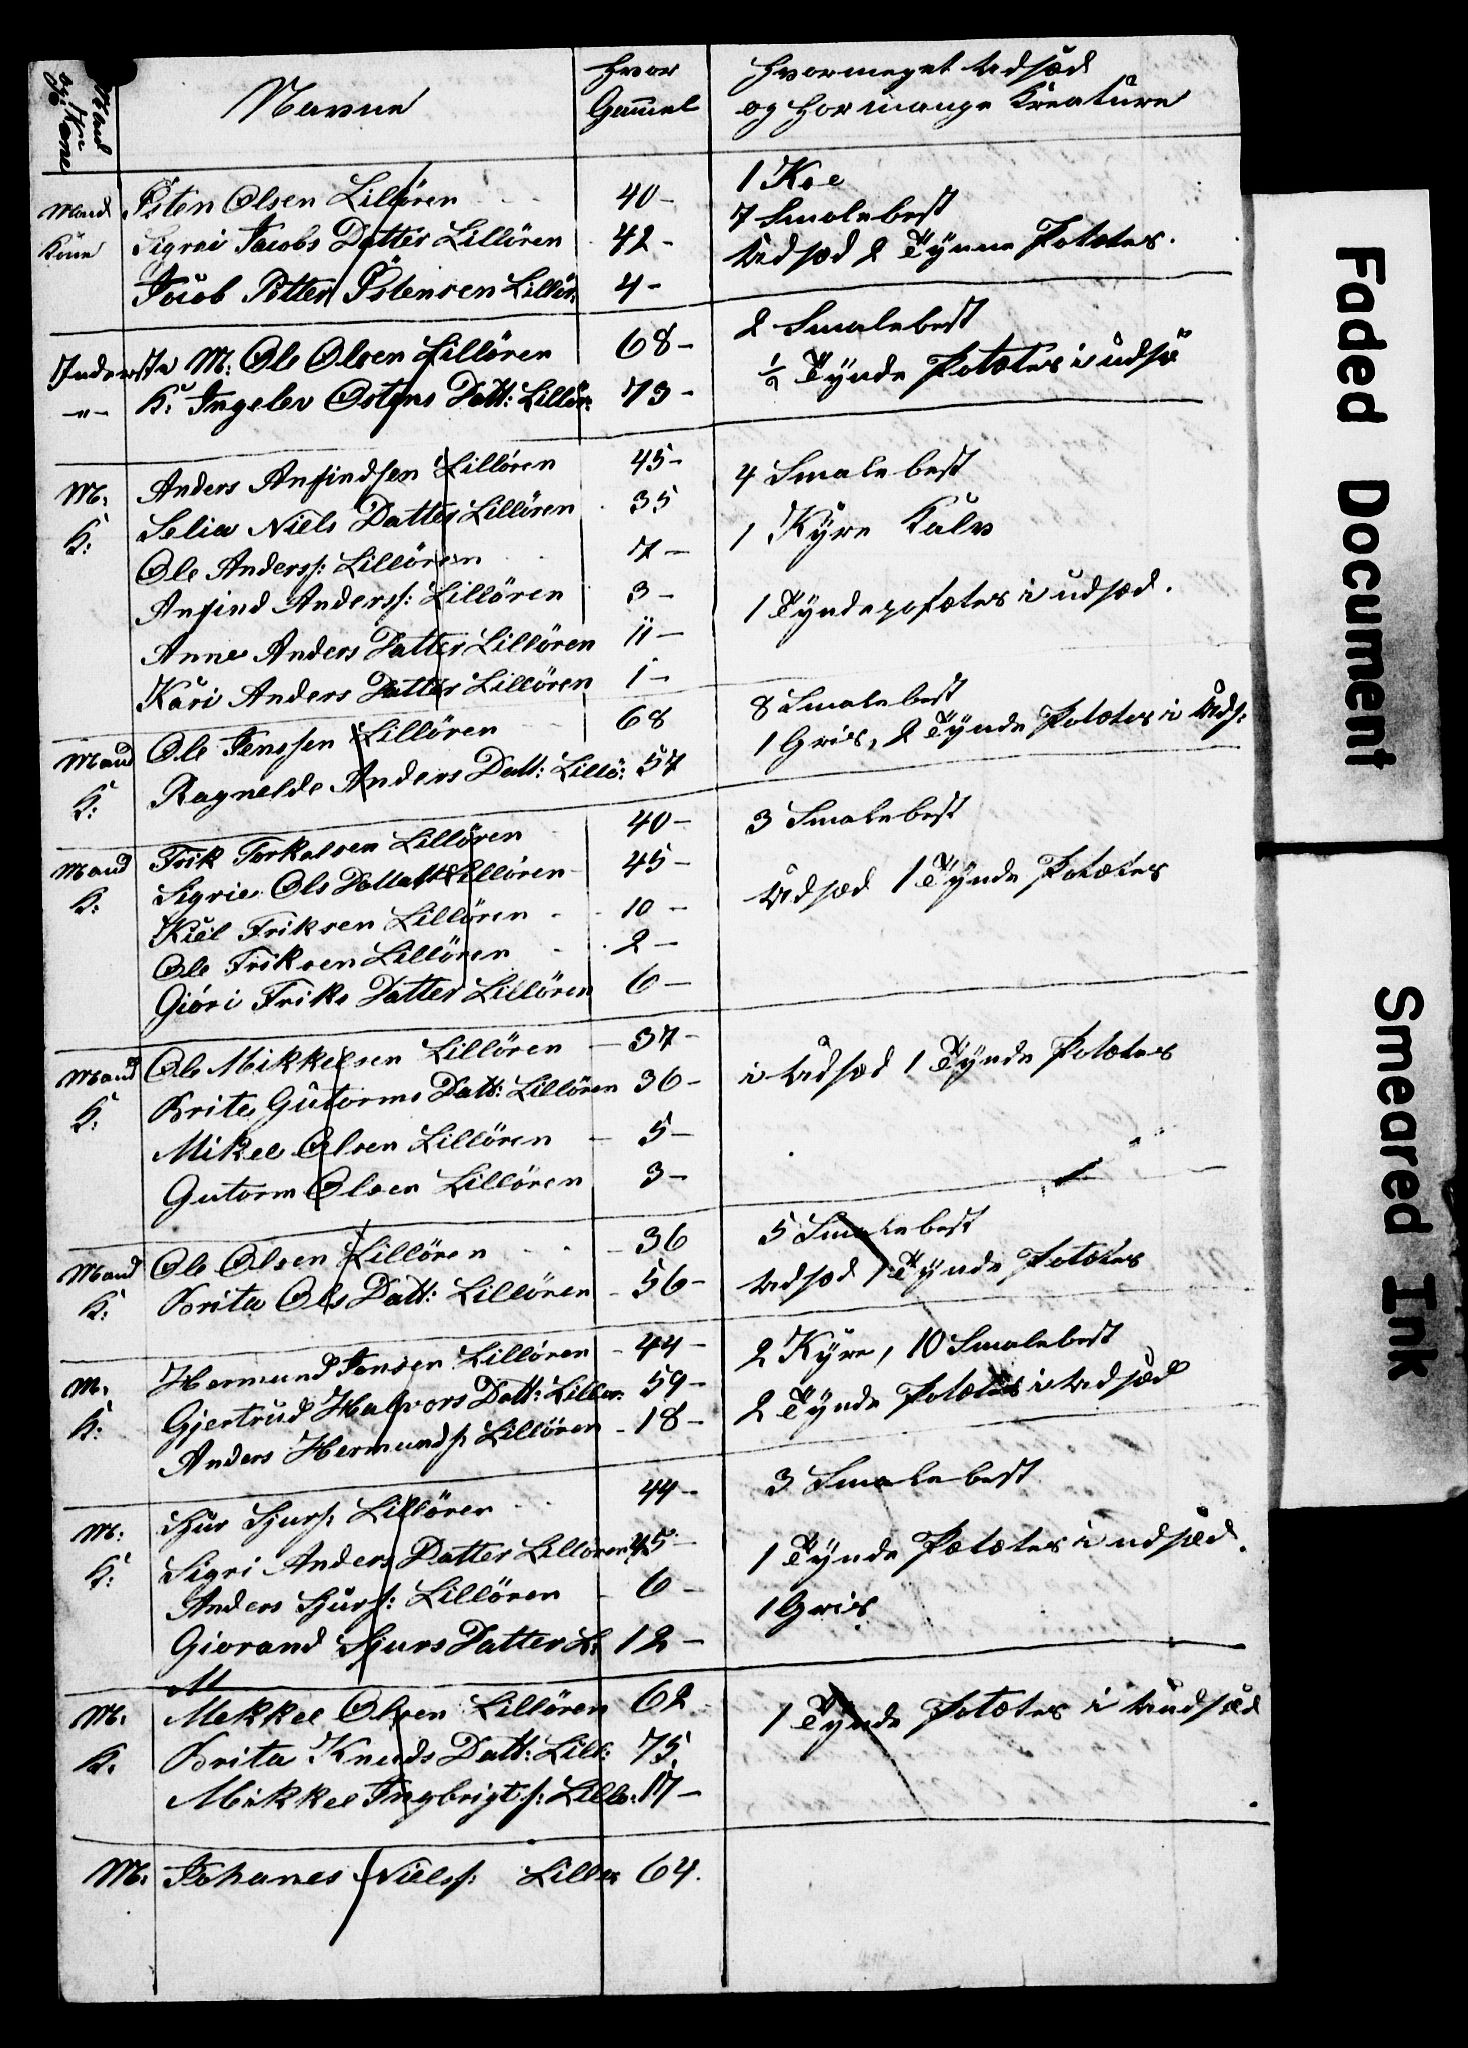 Mand og Kone
Navne
Hvor Gammel
Hvormeget Udsæd
og hormange Kreature
Mand Østen Olsen Lillören 40 - 1 Koe
Kone Sigrei Jacobs Datter Lillören 42 - 7 Smalebest
Jacob Petter Östensen Lillör: 4 - Udsæd 2 Tynne Potetes.
Inderste M: Ole Olsen Lillören 68 - 2 Smalebest
-"- K: Ingelev Ostens Datt: Lillör: 73 - ½ Tynde Potetes i udsæ
M: Anders Anfindsen Lillören 45 - 4 Smalebest
K: Selia Niels Datter Lillören 35 1 Kyre Kalv
Ole Anderss: Lillören 7 -
Anfind Anderss: Lillören 3 - 1 Tynde potetes i udsæd.
Anne Anders Datter Lillören 11 -
Kari Anders Datter Lillören 1 -
Mand Ole Jenssen Lillören 68 8 Smalebest
K: Ragnelde Anders Datt: Lillö: 57 1 Gris, 2 Tynde Potetes i Uds:
Mand Erik Torkelsen Lillören 40 - 3 Smalebest
K: Sigrie Ols Lillören 45 - Udsæd 1 Tynde Potetes
Kiel Eriksen Lillören 10 -
Ole Eriksen Lillören 2 -
Gióri Eriks Datter Lillören 6 -
Mand Ole Mikkelsen Lillören - 37 - i Udsæd 1 Tynde Potetes
K: Brite Gutorms Datt: Lillören 36 -
Mikel Olsen Lillören - 5 -
Gutorm Olsen Lillören 3 -
Mand Ole Olsen Lillören - 36 5 Smalebest
K: Brita Ols Datt: Lillören - 56 - Udsæd 1 Tynde Potetes
M. Hermund Jensen Lillören - 44 - 2 Kyre, 10 Smalebest
K: Gjertrud Halvors Datt: Lillör: 59 - 2 Tynde Potetes i Udsæd
Anders Hermunds: Lillören - 18 -
M: Sjur Sjurs: Lillören 44 - 3 Smalebest
K: Sigri Anders Datter Lillören 45 - 1 Tynde Potetes i udsæd.
Anders Sjurs: Lillören - 6 - 1 Gris
Giorand Sjurs Datter L: 12 -
M
M. Mekkel Olsen Lillören 62 1 Tynde Potetes i Uudsæd
K. Brita Knuds Datt: Lill: 75
Mikkel Ingbrigts: Lillö: 17 -
M: Johanes Nielss: Lillör 64.
Faded Document
Smeared Ink